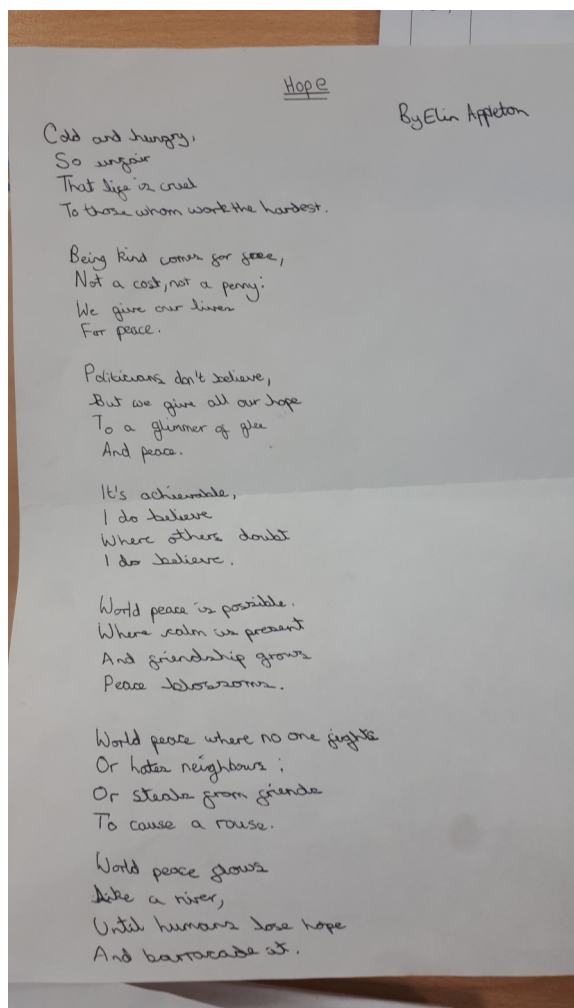 Hope
By Elin Appleton
Cold and hungry,
So unfair
That life is cruel
To those whom work the hardest.
Being kind comes for free,
Not a cost, not a penny:
We give our lives
For peace.
Politicians don't believe,
But we give all our hope
To a glimmer of glee
And peace.
It's achievable,
I do believe
Where others doubt
I do believe.
World peace is possible.
Where calm is present
And friendship grows
Peace blossoms.
World peace where no one fights
Or hates neighbours;
Or steals from friends
To cause a rouse.
World peace flows
Like a river,
Until humans lose hope
And barracade it.